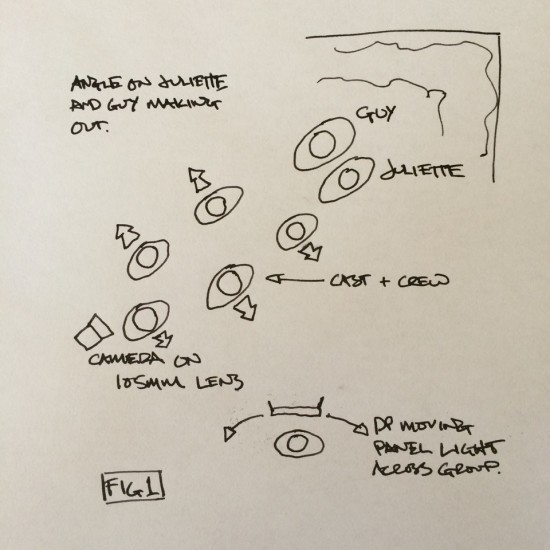 ANGLE ON JULIETTE
AND GUY MAKING
OUT.
GUY
JULIETTE
CAST + CREW
CAMERA ON
105MM LENS
DP MOVING
PANEL LIGHT
ACROSS GROUP.
FIG 1